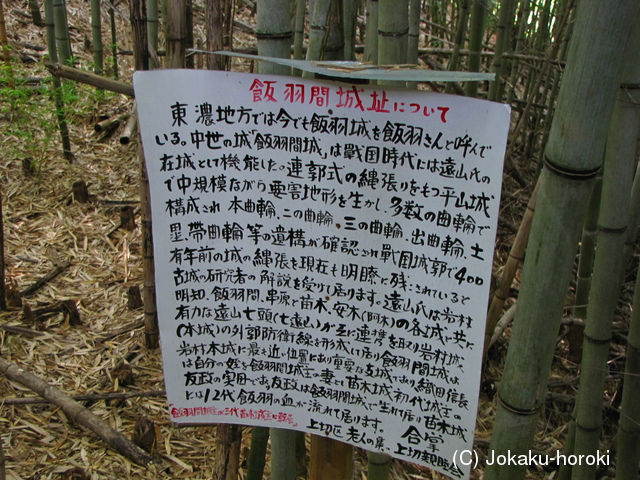 飯羽間城址について
東濃地方では今でも飯羽城を飯羽さんと呼んで
いる。中世の城「飯羽間城」は戦国時代には遠山氏の
在城として機能した。連郭式の縄張りをもつ平山城
で中規模ながら要害地形を生かし、多数の曲輪で
構成され 本曲輪、二の曲輪、三の曲輪、出曲輪、土
塁、帯曲輪等の遺構が確認され戦国城郭で400
有年前の城の縄張を現在も明瞭に残されていると
古城の研究者の解説を受けて居ります。遠山氏は岩村
明知、飯羽間、串原と苗木、安木(阿木)の各城と共に
有力な遠山七頭(七遠山)が互に連携を取り岩村城、
(本城)の外郭防衛線を形成して居り飯羽間城は
岩村本城に最も近い位置にあり重要な支城であり織田信長
は自分の姪を飯羽間城主の妻とし苗木城初代城主の
友政の実母である友政は飯羽間城で生れて居り苗木城
には12代飯羽の血が流れて居ります。 合掌
上切区 老人の集い 上切親睦会
(C) Jokaku-horoki